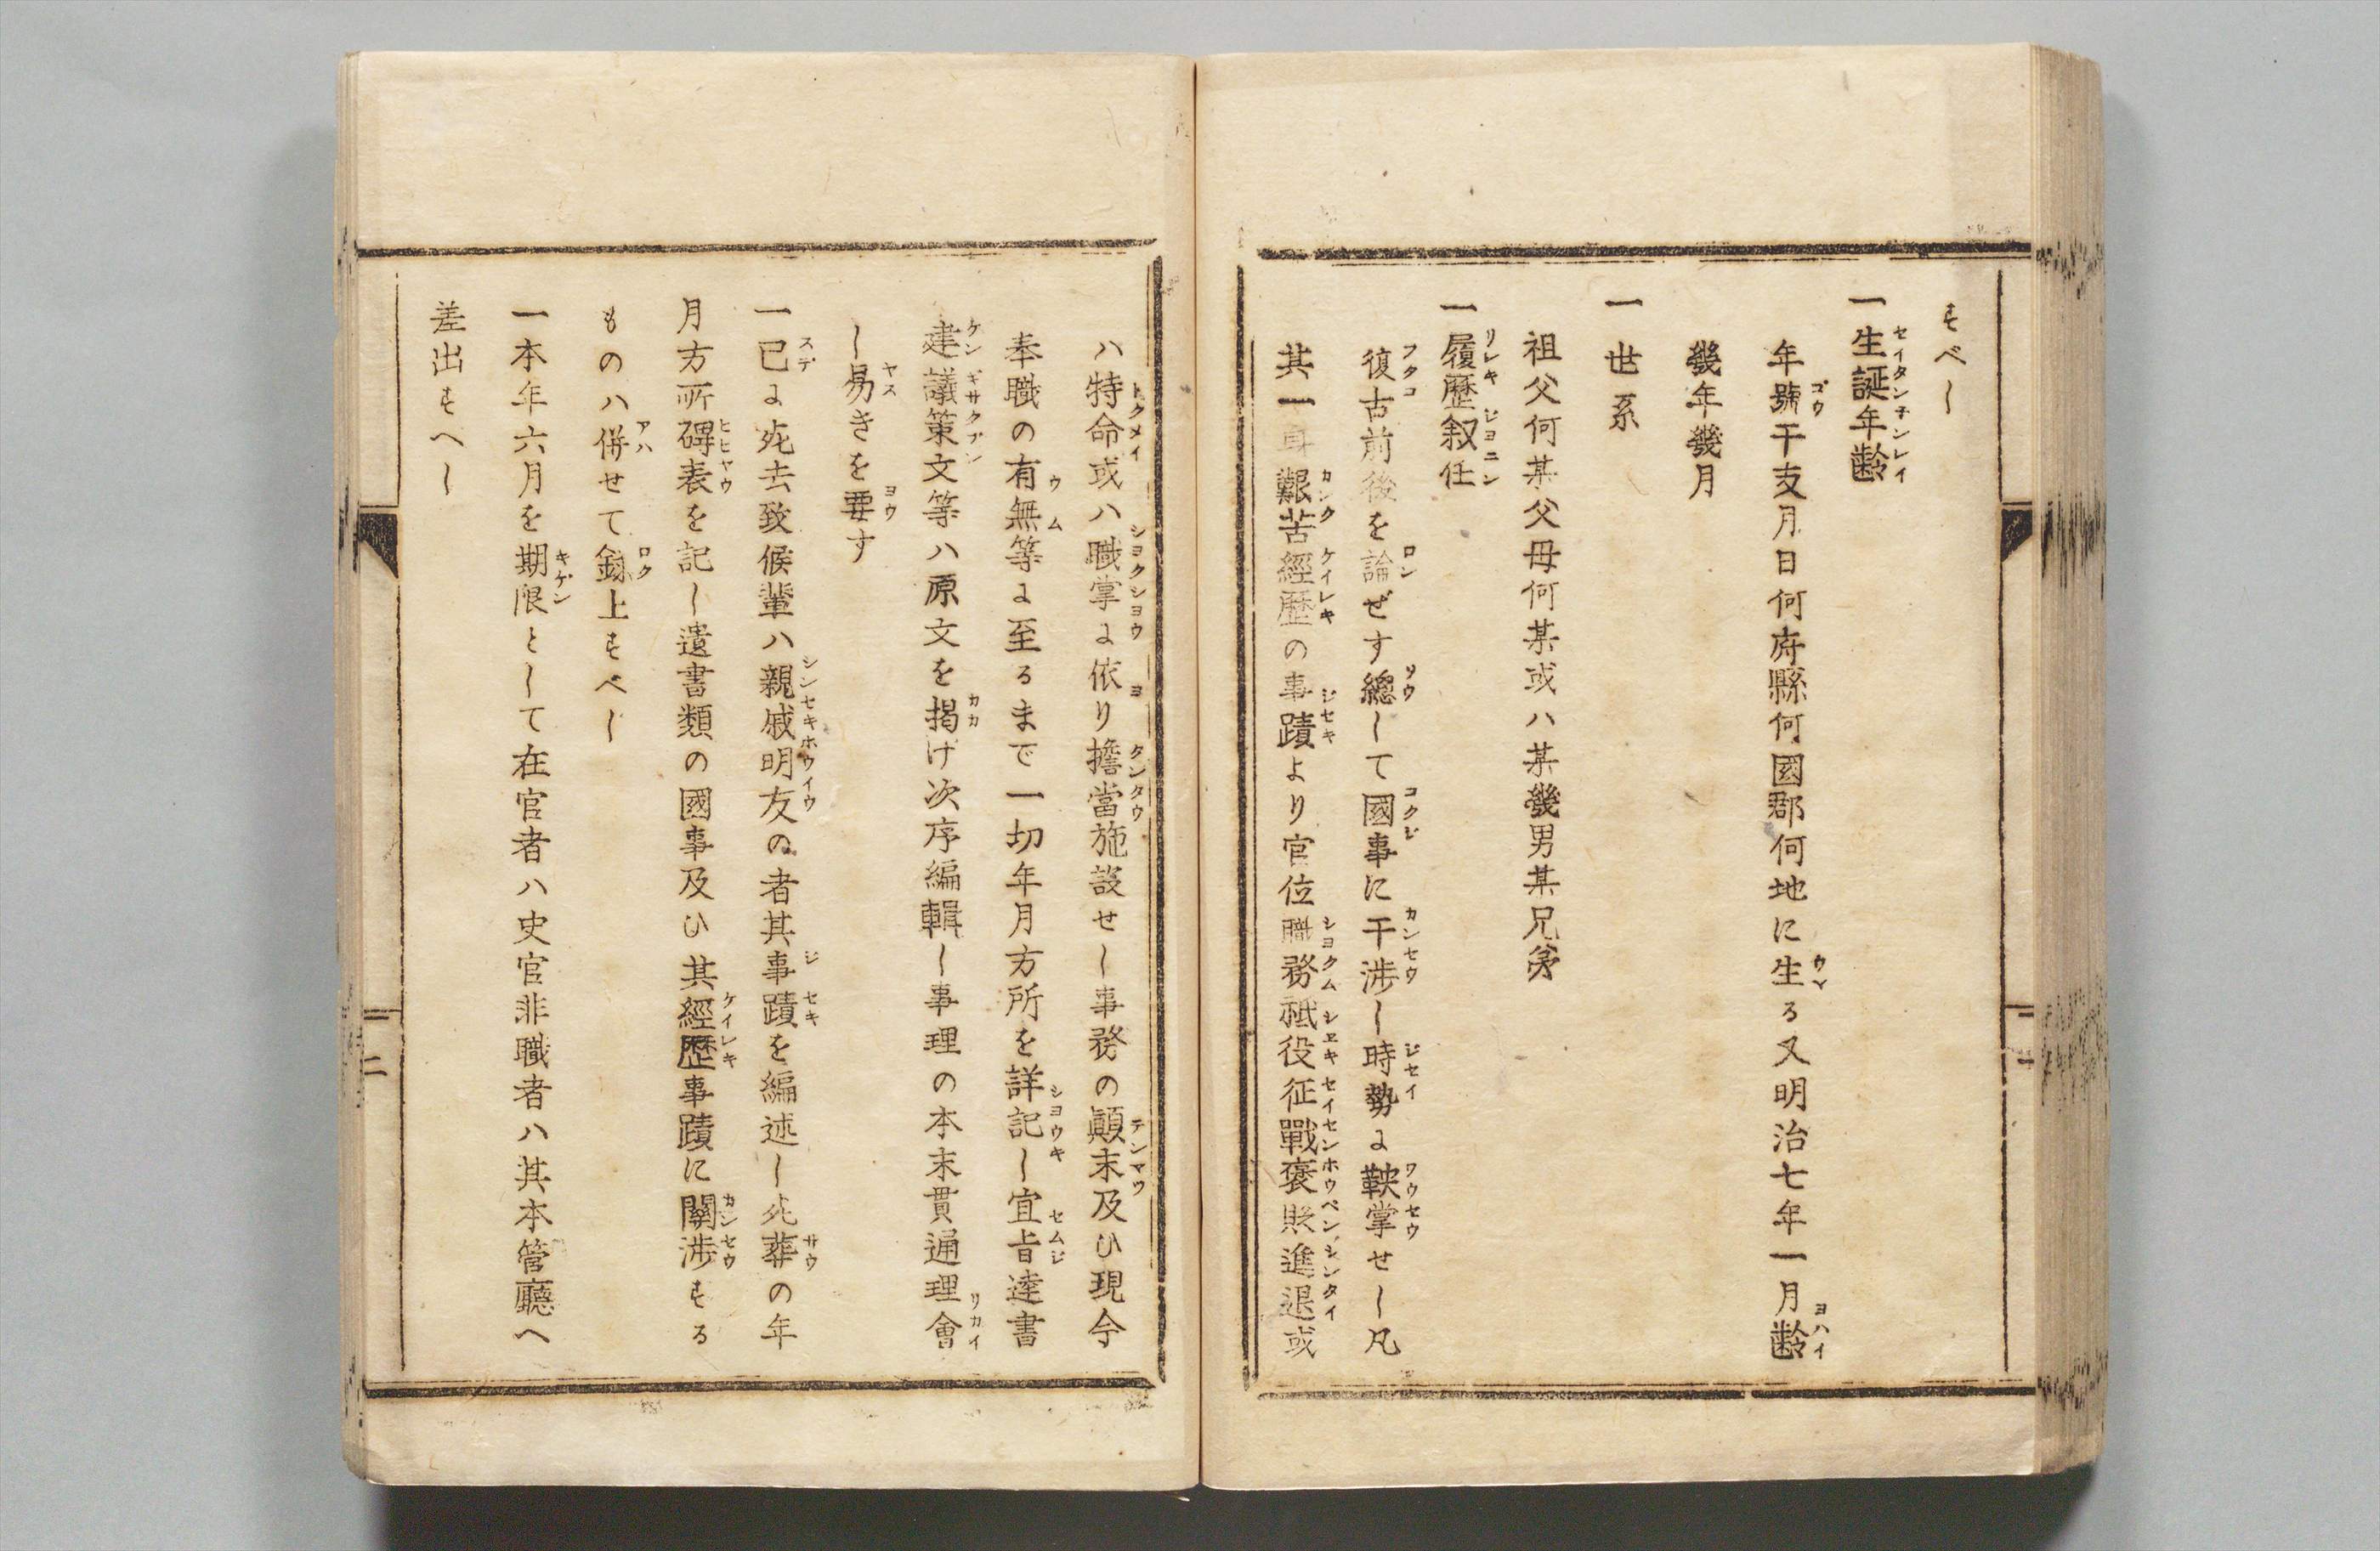 すべし
一生誕年齢
年號干支月日何府縣何國郡何地に生る又明治七年一月齢
幾年幾月
一世系
祖父何某父母何某或ハ某幾男某兄弟
一履歴叙任
復古前後を論ぜす總して國事に干渉し時勢に鞅掌せし凡
其一身艱苦經歴の事蹟より官位職務祗役征戰褒貶進退或
ハ特命或ハ職掌に依り擔當施設せし事務の顚末及ひ現今
奉職の有無等に至るまで一切年月方所を詳記し宣旨達書
建議策文等ハ原文を掲げ次序編輯し事理の本末貫通理會
し易きを要す
一已に死去致候輩ハ親戚朋友の者其事蹟を編述し死葬の年
月方所碑表を記し遺書類の國事及ひ其經歴事蹟に關渉する
ものハ併せて録上すべし
一本年六月を期限として在官者ハ史官非職者ハ其本管廳へ
差出すへし
二